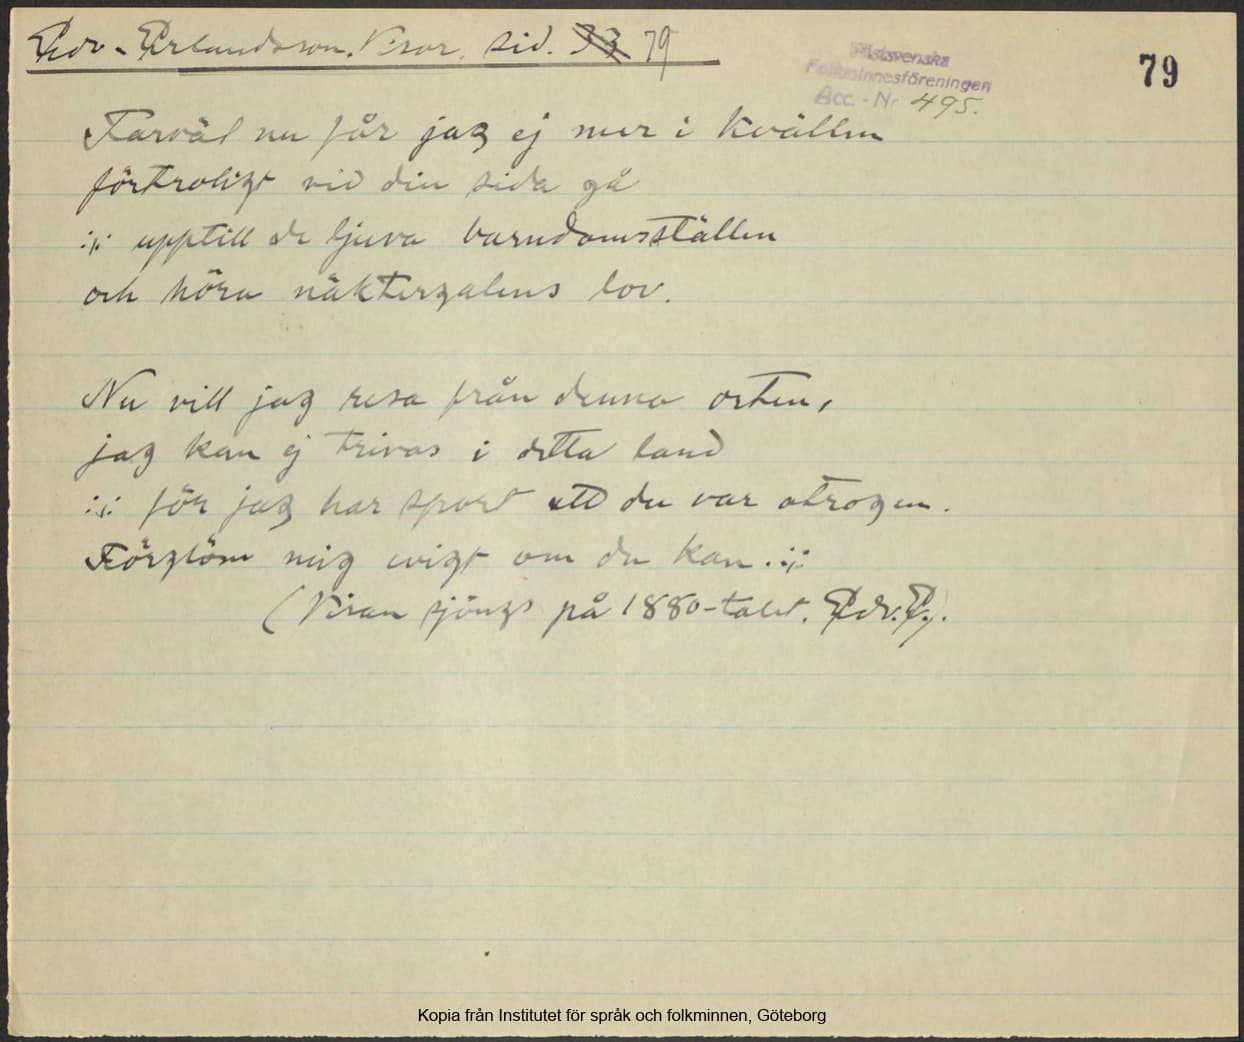 Edv. Erlandsson. Visor. sid. 33 79
Västsvenska
Folkminnesföreningen
Acc. - Nr 495.
79
Farväl nu får jag ej mer i kvällen
förtroligt vid din sida gå
:,: upptill de ljuva barndomsställen
och höra näktergalens lov.
Nu vill jag resa från denna orten,
jag kan ej trivas i detta land
:,: för jag har sport att du var otrogen.
Förglöm mig evigt om du kan. :,:
(Visan sjöngs på 1880-talet. Edv. E.).
Kopia från Institutet för språk och folkminnen, Göteborg